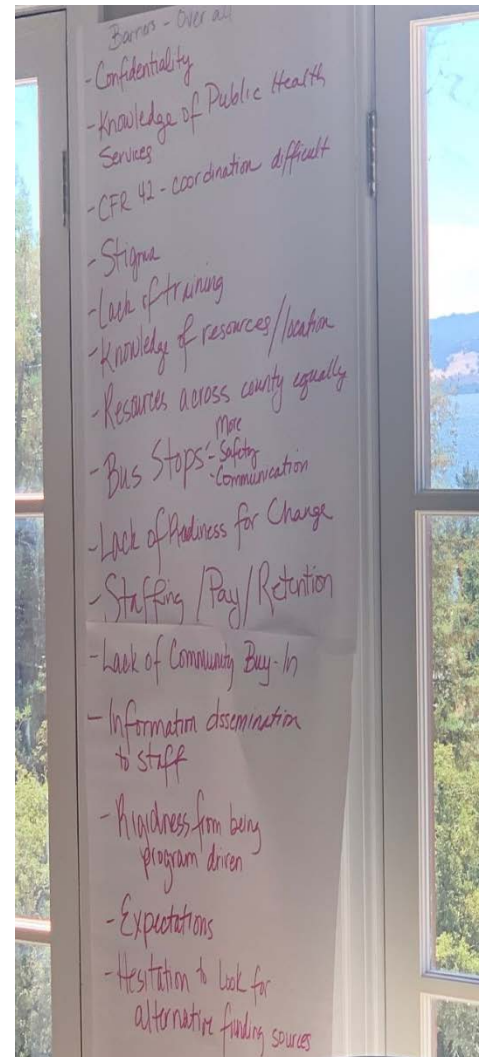 Barriers - Over all
- Confidentiality
- Knowledge of Public Health
Services
- CFR 42 - coordination difficult
- Stigma
- Lack of training
- Knowledge of resources/location
- Resources across county equally
- Bus Stops: More
- Safety
- Communication
- Lack of Readiness for Change
- Staffing / Pay / Retention
- Lack of Community Buy-In
- Information dssemination
to staff
- Rigidness from being
program driven
- Expectations
- Hesitation to Look for
alternative funding sources